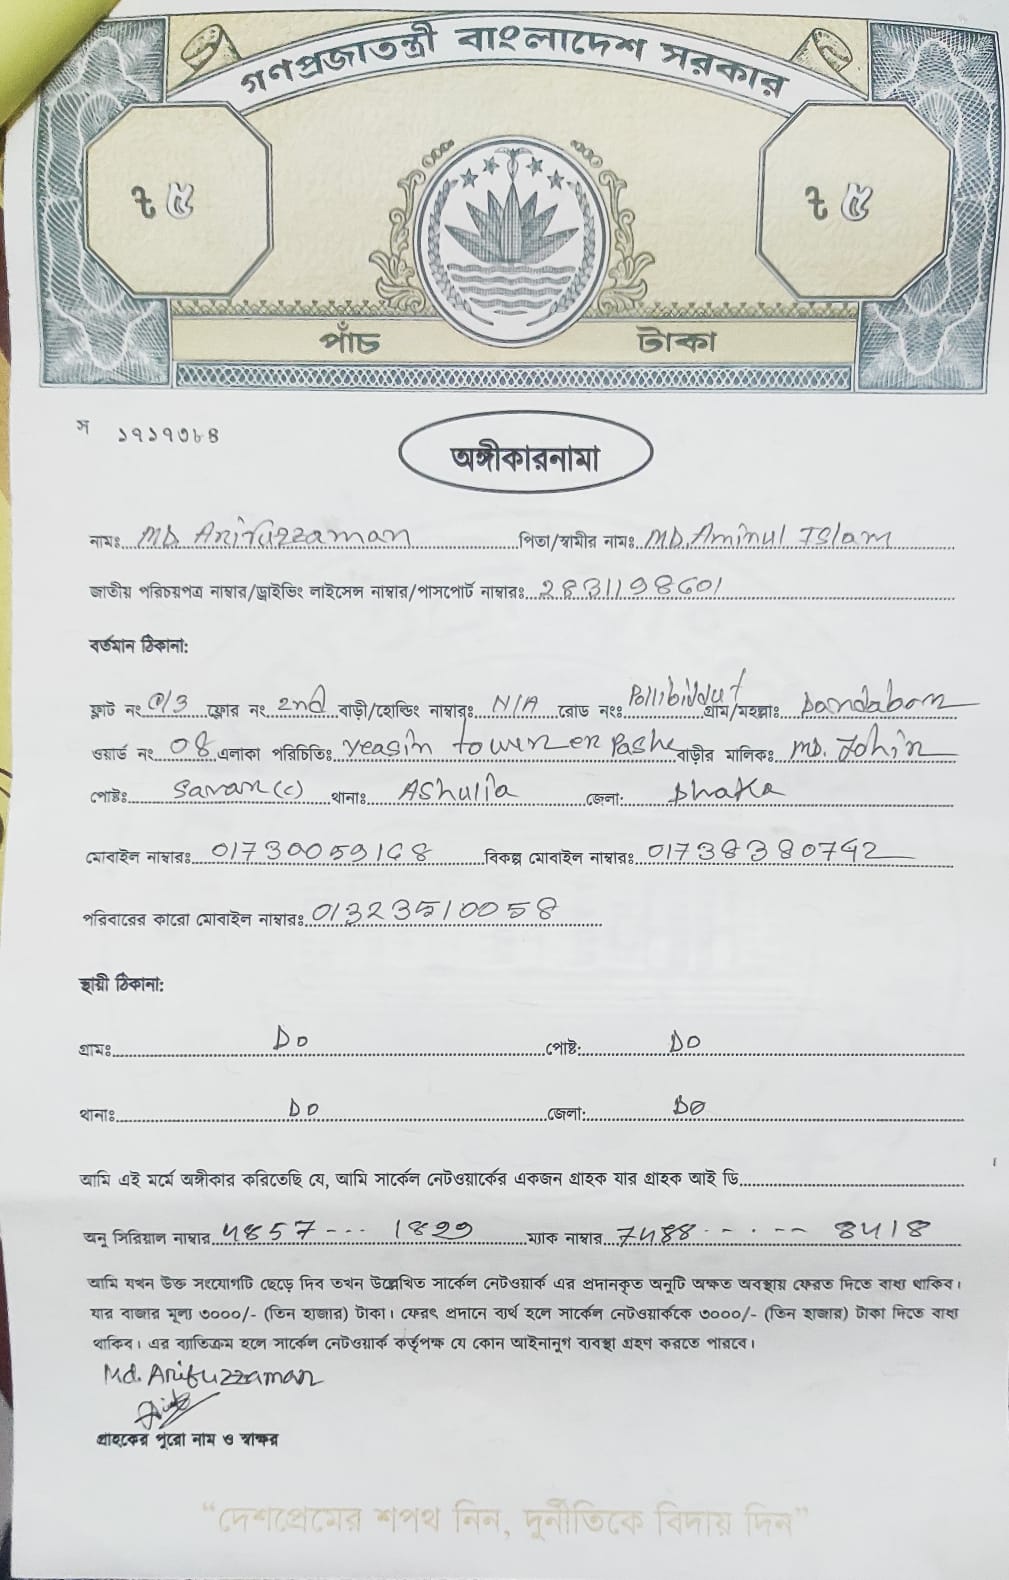 গণপ্রজাতন্ত্রী বাংলাদেশ সরকার
৳ ৫ ৳ ৫
পাঁচ টাকা
স ১৭১৭৩৮৪
অঙ্গীকারনামা
নামঃ MD. Arifuzzaman পিতা/স্বামীর নামঃ MD. Aminul Islam
জাতীয় পরিচয়পত্র নাম্বার/ড্রাইভিং লাইসেন্স নাম্বার/পাসপোর্ট নাম্বারঃ 2831198601
বর্তমান ঠিকানা:
ফ্লাট নং /3 ফ্লোর নং 2nd বাড়ী/হোল্ডিং নাম্বারঃ N/A রোড নংঃ Pollibiddut গ্রাম/মহল্লাঃ Dandabom
ওয়ার্ড নং 08 এলাকা পরিচিতিঃ Yeasin tower er Pashe বাড়ীর মালিকঃ MD. Johin
পোষ্টঃ Savar (c) থানাঃ AShulia জেলা: Dhaka
মোবাইল নাম্বারঃ 01730059168 বিকল্প মোবাইল নাম্বারঃ 01738380742
পরিবারের কারো মোবাইল নাম্বারঃ 01323510058
স্থায়ী ঠিকানা:
গ্রামঃ DO পোষ্ট: DO
থানাঃ DO জেলা: DO
আমি এই মর্মে অঙ্গীকার করিতেছি যে, আমি সার্কেল নেটওয়ার্কের একজন গ্রাহক যার গ্রাহক আই ডি
অনু সিরিয়াল নাম্বার 4857--- 1829 ম্যাক নাম্বার 7488----- 8418
আমি যখন উক্ত সংযোগটি ছেড়ে দিব তখন উল্লেখিত সার্কেল নেটওয়ার্ক এর প্রদানকৃত অনুটি অক্ষত অবস্থায় ফেরত দিতে বাধ্য থাকিব।
যার বাজার মূল্য ৩০০০/- (তিন হাজার) টাকা। ফেরৎ প্রদানে ব্যর্থ হলে সার্কেল নেটওয়ার্ককে ৩০০০/- (তিন হাজার) টাকা দিতে বাধ্য
থাকিব। এর ব্যাতিক্রম হলে সার্কেল নেটওয়ার্ক কর্তৃপক্ষ যে কোন আইনানুগ ব্যবস্থা গ্রহণ করতে পারবে।
Md. Arifuzzaman
গ্রাহকের পুরো নাম ও স্বাক্ষর
“দেশপ্রেমের শপথ নিন, দুর্নীতিকে বিদায় দিন”